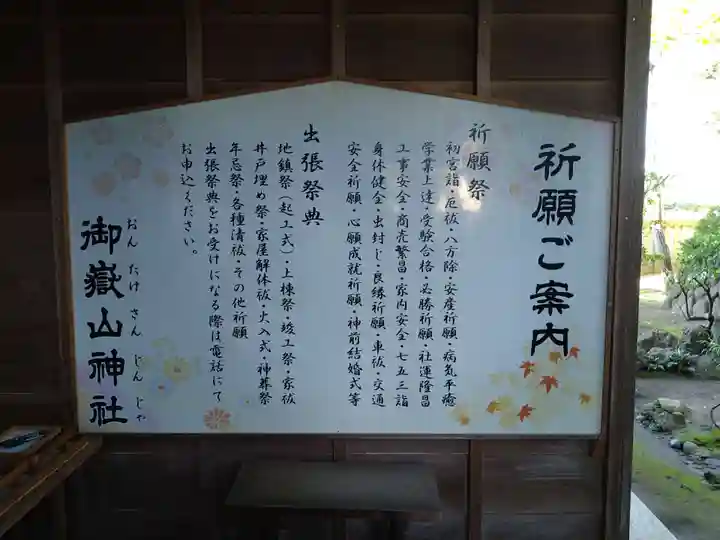 祈願ご案内
祈願祭
初宮詣・厄祓・八方除・安産祈願・病気平癒
学業上達・受験合格・必勝祈願・社運隆昌
工事安全・商売繁昌・家内安全・七五三詣
身体健全・虫封じ・良縁祈願・車祓・交通
安全祈願・心願成就祈願・神前結婚式等
出張祭典
地鎮祭(起工式)・上棟祭・竣工祭・家祓
井戸埋め祭・家屋解体祓・火入式・神葬祭
年忌祭・各種清祓・その他祈願
出張祭典をお受けになる際は電話にて
お申込ください。
御嶽山神社
おんたけさんじんじゃ